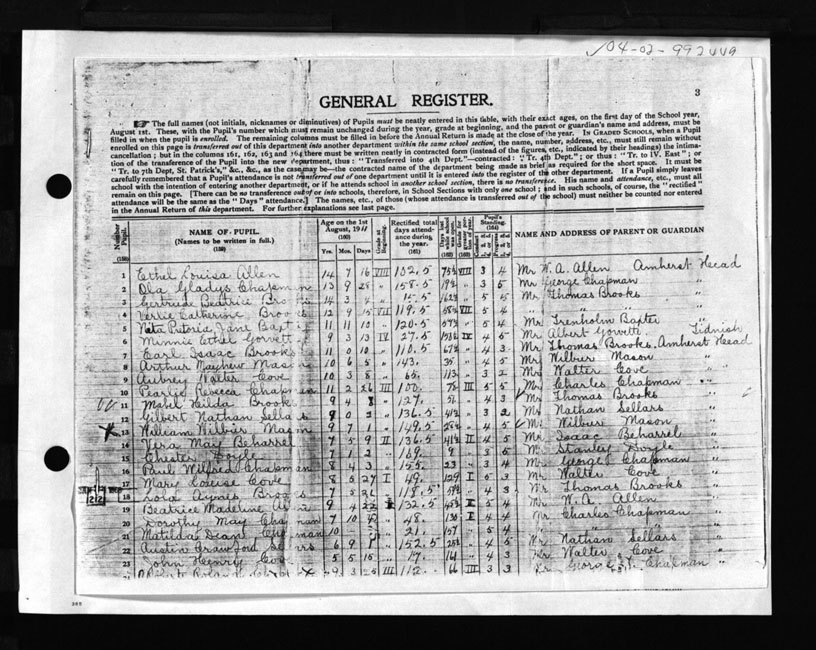 04-02-992449
3
GENERAL REGISTER.
The full names (not initials, nicknames or diminutives) of Pupils must be neatly entered in this table, with their exact ages, on the first day of the School year,
August 1st. These, with the Pupil's number which must remain unchanged during the year, grade at beginning, and the parent or guardian's name and address, must be
filled in when the pupil is enrolled. The remaining columns must be filled in before the Annual Return is made at the close of the year. IN GRADED SCHOOLS, when a Pupil
enrolled on this page is transferred out of this department into another department within the same school section, the name, number, address, etc., must still remain without
cancellation; but in the columns 161, 162, 163 and 164 there must be written neatly in contracted form (instead of the figures, etc., indicated by their headings) the intima-
tion of the transference of the Pupil into the new department, thus: "Transferred into 4th Dept."—contracted: "Tr. 4th Dept."; or thus: "Tr. to IV. East"; or
"Tr. to 7th Dept, St. Patrick's," &c., &c., as the case may be—the contracted name of the department being made as brief as required for the short space. It must be
carefully remembered that a Pupil's attendance is not transferred out of one department until it is entered into the register of the other department. If a Pupil simply leaves
school with the intention of entering another department, or if he attends school in another school section, there is no transference. His name and attendance, etc., must all
remain on this page. [There can be no transference out of or into schools, therefore, in School Sections with only one school; and in such schools, of course, the "rectified"
attendance will be the same as the "Days" attendance.] The names, etc., of those (whose attendance is transferred out of the school) must neither be counted nor entered
in the Annual Return of this department. For further explanations see last page.
Number Pupil. (158) NAME OF PUPIL. (Names to be written in full.) (159) Age on the 1st August, 1911 (160) Yrs. Mos. Days Grade at Beginning. Rectified total days attendance during the year. (161) Days lost (162) (163) Pupil's Standing. (164) NAME AND ADDRESS OF PARENT OR GUARDIAN
1 Ethel Louisa Allen 14 7 16 VIII 102.5 75½ VIII 3 4 Mr W. A. Allen Amherst Head
2 Ola Gladys Chapman 13 9 28 " 158.5 19½ " 3 5 Mr George Chapman "
3 Gertrude Beatrice Brooks 14 3 4 " 15.5 162½ " 5 5 Mr Thomas Brooks "
4 Verlie Catherine Brooks 12 9 15 VII 119.5 58½ VII 5 4 " " "
5 Pitoria Jane Baxter 11 11 10 " 120.5 57½ " 5 4 Mr Trenholm Baxter "
6 Minnie Ethel Gorvett 9 3 13 IV 27.5 IV 4 5 Mr Albert Gorvett Tidnish
7 Earl Isaac Brooks 11 0 10 " 110.5 67½ " 4 3 Mr Thomas Brooks Amherst Head
8 Arthur Mayhew Mason 10 6 5 " 143. 35 " 4 5 Mr Wilbur Mason "
9 Aubrey Walter Cove 10 3 8 " 65. 113 " 3 2 Mr Walter Cove "
10 Pearlie Rebecca Chapman 11 2 26 III 100. 78 III 5 5 Mr Charles Chapman "
11 Mabel Hilda Brooks 9 4 8 " 127. 51 " 4 3 Mr Thomas Brooks "
12 Gilbert Nathan Sellars 9 0 2 " 136.5 41½ " 3 2 Mr Nathan Sellars "
13 William Wilbur Mason 9 7 1 " 149.5 28½ " 4 5 Mr Wilbur Mason "
14 Vera May Beharrel 7 5 9 II 136.5 41½ II 4 5 Mr Isaac Beharrel "
15 Chester Doyle 7 1 2 " 169. 9 " 3 5 Mr Stanley Doyle "
16 Paul Wilfred Chapman 8 4 3 " 155. 23 " 3 4 Mr George Chapman "
17 Mary Louise Cove 8 5 27 I 49. 129 I 5 3 Mr Walter Cove "
18 Lora Agnes Brooks 7 5 26 " 118.5 59½ " 4 3 Mr Thomas Brooks "
19 Beatrice Madeline Allen 9 4 22 132.5 45½ 5 4 Mr W. A. Allen "
20 Dorothy May Chapman 7 10 " 48. 130 I 4 4 Mr Charles Chapman "
21 Matilda Chapman 10 " 21. 157 " 5 4 " " "
22 Austin Crawford Sellars 6 9 " 152.5 25½ " 4 5 Mr Nathan Sellars "
23 John Henry Cove 5 5 15 " 17. 161 " 4 3 Mr Walter Cove "
9 3 25 III 112. 66 III 3 4 Mr George Chapman "